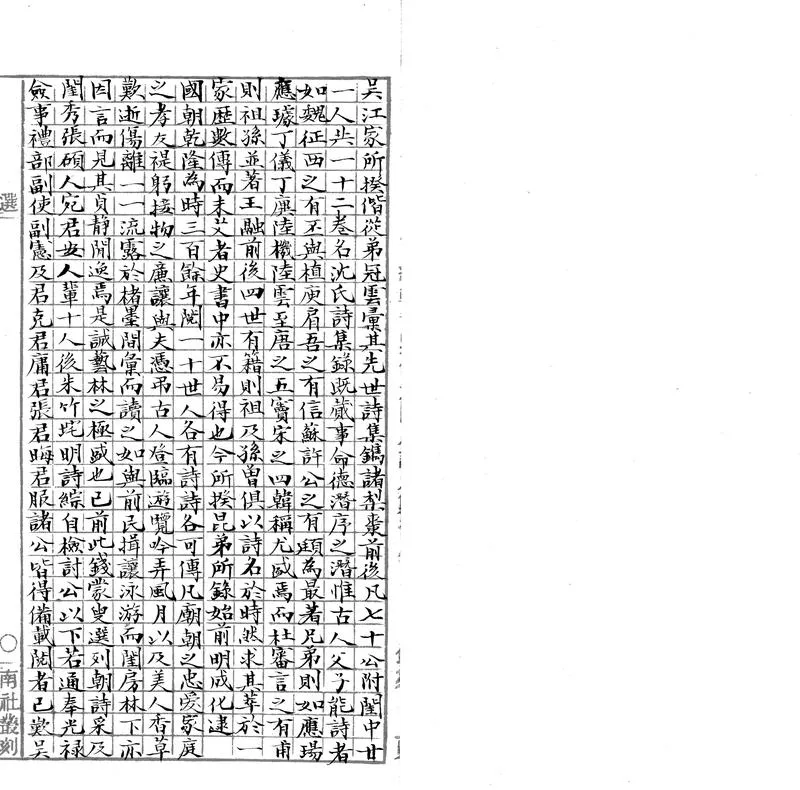 吳江家所揆偕從弟冠雲彙其先世詩集鐫諸梨棗前後凡七十公附閨中廿
一人共一十二卷名沈氏詩集錄旣蕆事命德潛序之潛惟古人父子能詩者
如魏征西之有丕與植庾肩吾之有信蘇許公之有頲為最著兄弟則如應瑒
應璩丁儀丁廙陸機陸雲至唐之五竇宋之四韓稱尤盛焉而杜審言之有甫
則祖孫並著王融前後四世有籍則祖及孫曾俱以詩名於時然求其萃於一
家歷數傳而未艾者史書中亦不易得也今所揆昆弟所錄始前明成化逮
國朝乾隆為時三百餘年閱一十世人各有詩詩各可傳凡廟朝之忠愛家庭
之孝友禔躬接物之廉讓與夫憑弔古人登臨遊覽吟弄風月以及美人香草
歎逝傷離一一流露於楮墨間彙而讀之如與前民揖讓泳游而閨房林下亦
因言而見其貞靜閒逸焉是誠藝林之極盛也已前此錢蒙叟選列朝詩采及
閨秀張碩人宛君安人輩十人後朱竹垞明詩綜自檢討公以下若通奉光祿
僉事禮部副使副憲及君克君庸君張君晦君服諸公皆得備載閱者已歎吳
選
〇
南社叢刻